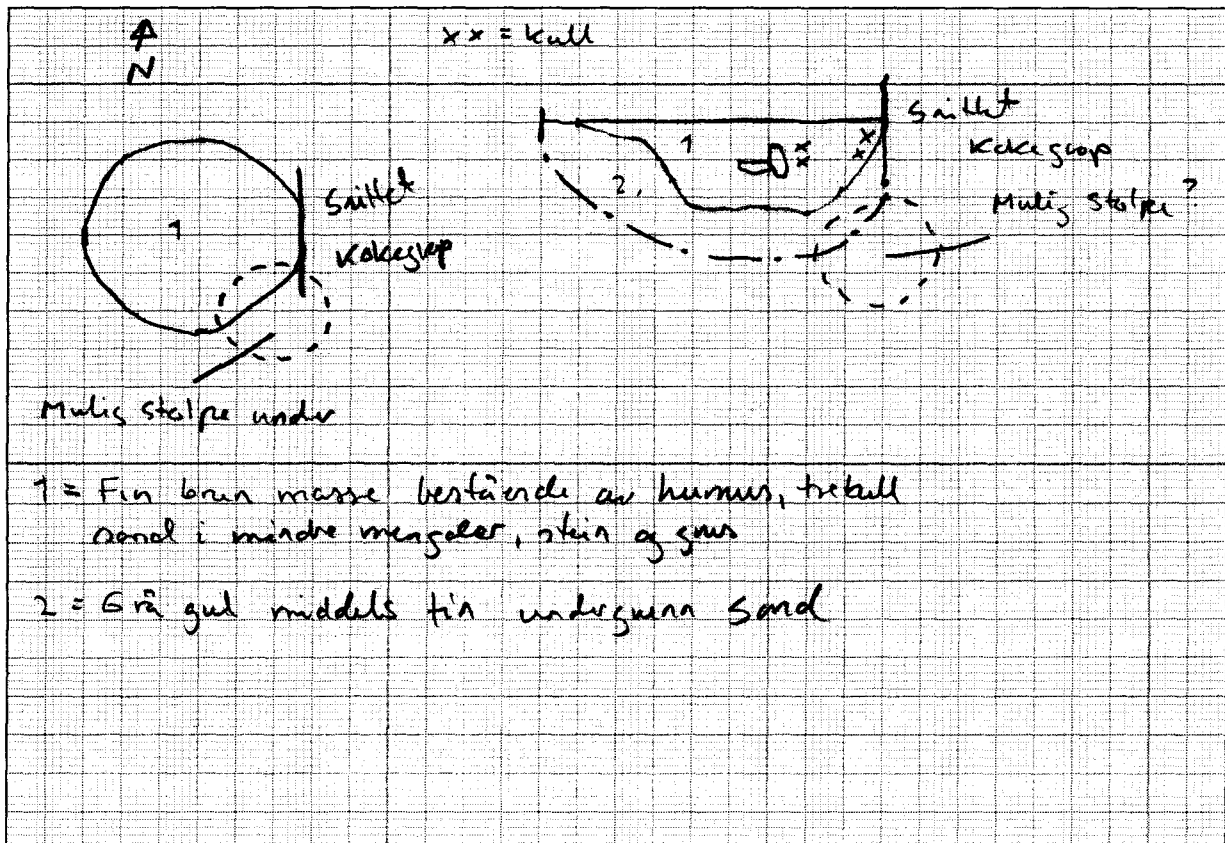 N
xx = kull
1
Snittet
Kokegrop
Mulig stolpe under
1
2.
xx
xx
Snittet
Kokegrop
Mulig stolpe?
1 = Fin brun masse bestående av humus, trekull
sand i mindre mengder, stein og grus
2 = Grå gul middels fin undergrunn sand